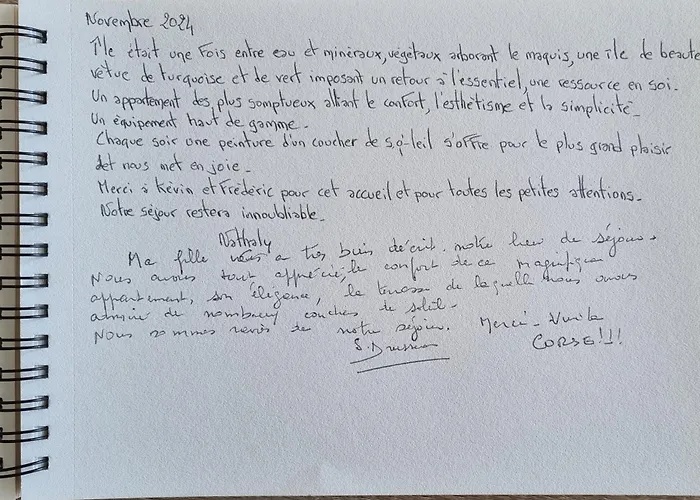 Novembre 2024
Île était une fois entre eau et minéraux, végétaux arborant le maquis, une île de beauté
vêtue de turquoise et de vert imposant un retour à l'essentiel, une ressource en soi.
Un appartement des plus somptueux alliant le confort, l'esthétisme et la simplicité.
Un équipement haut de gamme.
Chaque soir une peinture d'un coucher de soleil s'offre pour le plus grand plaisir
et nous met en joie.
Merci à Kévin et Frédéric pour cet accueil et pour toutes les petites attentions.
Notre séjour restera innoubliable.
Nathaly
Ma fille a très bien décrit notre lieu de séjour.
Nous avons tout apprécié, le confort de ce magnifique
appartement, son élégance, la terrasse de laquelle nous avons
admiré de nombreux couchers de soleil.
Nous sommes ravis de notre séjour. Merci - Vive la
CORSE!!!